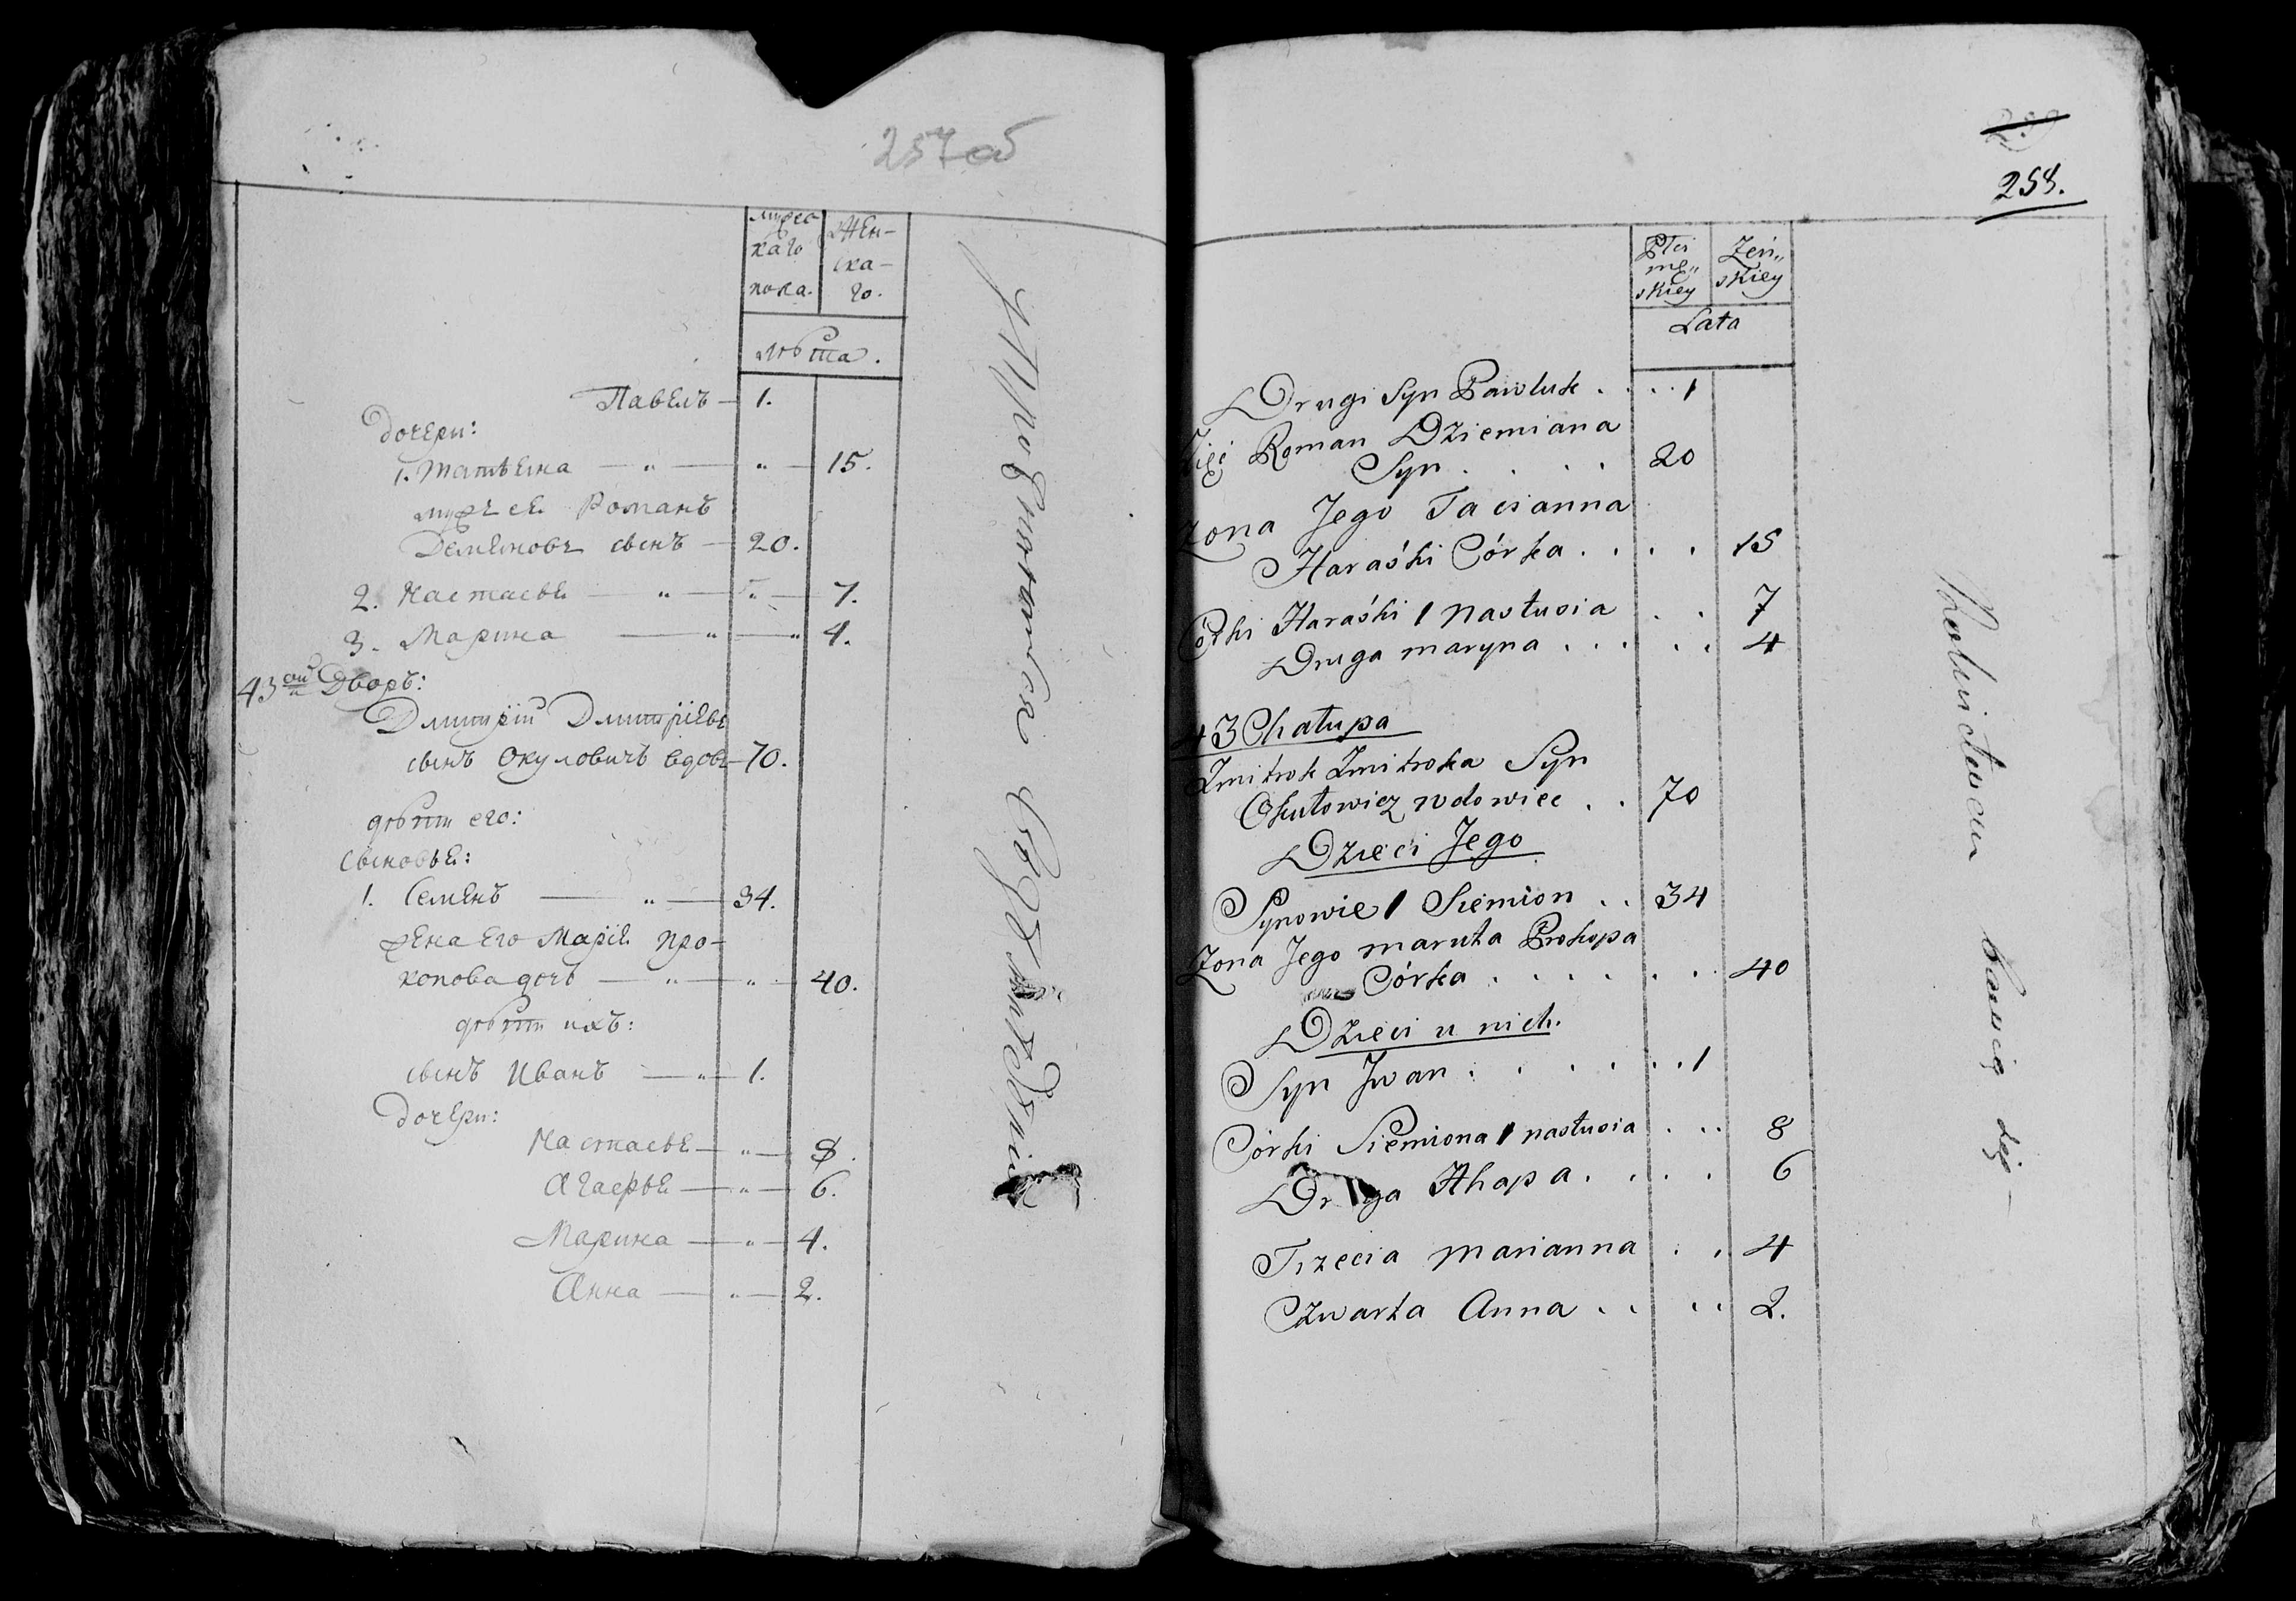 257об
мужес
каго
пола.
жен-
ска-
го.
лѣта.
Павелъ — 1.
Дочери:
1. Татьяна — „ — „ — 15.
мужъ ея Романъ
Демьяновъ сынъ — 20.
2. Настасья — „ — „ — 7.
3. Марина — „ — „ 4.
43ой Дворъ:
Дмитрій Дмитріевъ
сынъ Окуловичъ вдовъ — 70.
дѣти его:
Сыновья:
1. Семенъ — „ — 34.
жена Его Марія про-
копова дочь — „ — „ — 40.
дѣти ихъ:
сынъ Иванъ — „ — 1.
Дочери:
Настасья — „ — 8.
Агафья — „ — 6.
Марина — „ — 4.
Анна — „ — 2.
258.
Płci
mę„
skiey
Żeń„
skiey
Lata
Drugi Syn Pawluk . . . . 1
Zięć Roman Dziemiana
Syn . . . . 20
Żona Jego Tacianna
Haraśki Córka . . . . 15
Córki Haraśki 1 nastusia . . 7
Druga maryna . . . . . 4
43 Chałupa
Zmitrok Zmitroka Syn
Okułowicz wdowiec . . 70
Dzieci Jego
Synowie 1 Siemion . . 34
Żona Jego maruta Prokopa
Córka . . . . . . 40
Dzieci u nich.
Syn Jwan . . . . . . 1
Córki Siemiona 1 nastusia . . . 8
Druga Ahapa . . . . 6
Trzecia marianna . . 4
Czwarta Anna . . . . 2.